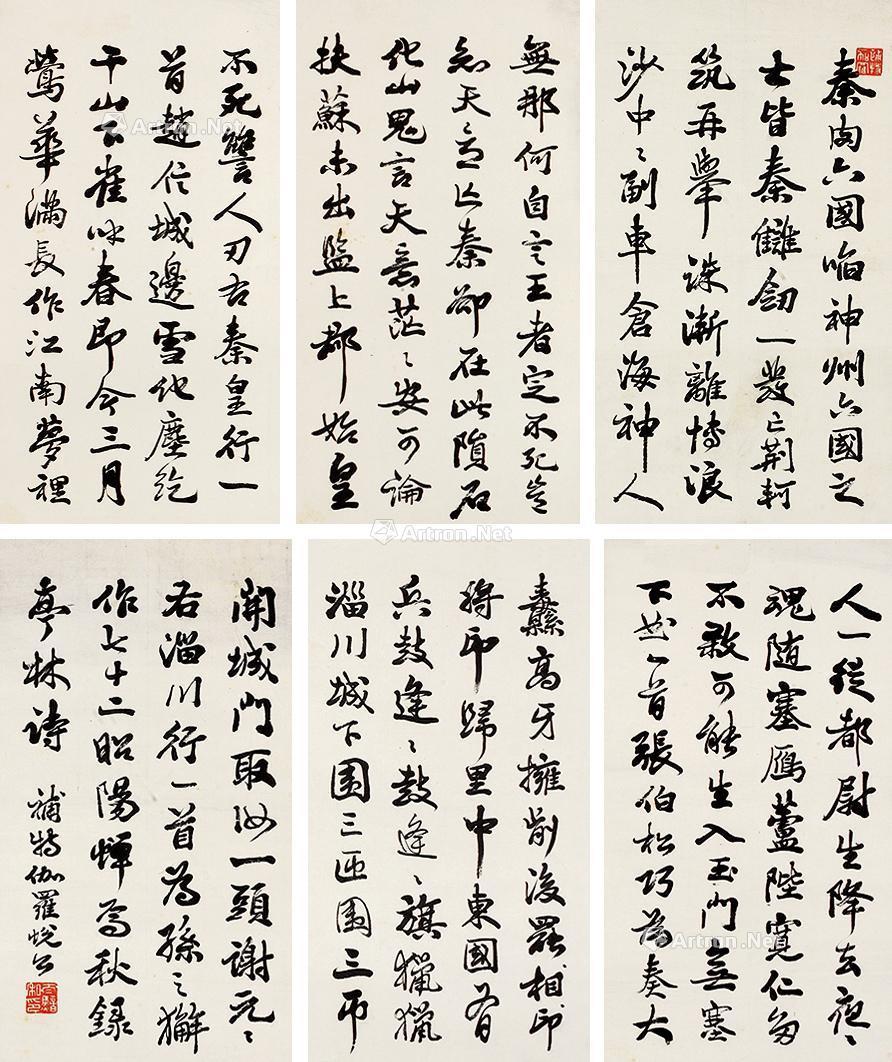 秦肉六國啗神州六國之
士皆秦讎劍一發亡荊軻
筑再舉誅漸離博浪
沙中〻副車倉海神人
無那何自言王者定不死豈
知天〻意亡秦卻在此隕石
化山鬼言天意茫〻安可論
扶蘇未出監上郡始皇
不死讐人刃右秦皇行一
首趙信城邊雪化塵紇
干山下雀呼春即今三月
鶯華滿長作江南夢裡
人一從都尉生降去夜〻
魂隨塞雁蘆陛寬仁多
不殺可能生入玉門無塞
下曲一首張伯松巧為奏大
纛高牙擁前後罷相印
將印歸里中東國有
兵鼓逢〻鼓逢〻旗獵獵
淄川城下圍三匝圍三帀
開城門取汝一頭謝元〻
右淄川行一首為孫之獬
作七十二昭陽憚為秋錄
亭林詩 補特伽羅悅公
Artron.Net